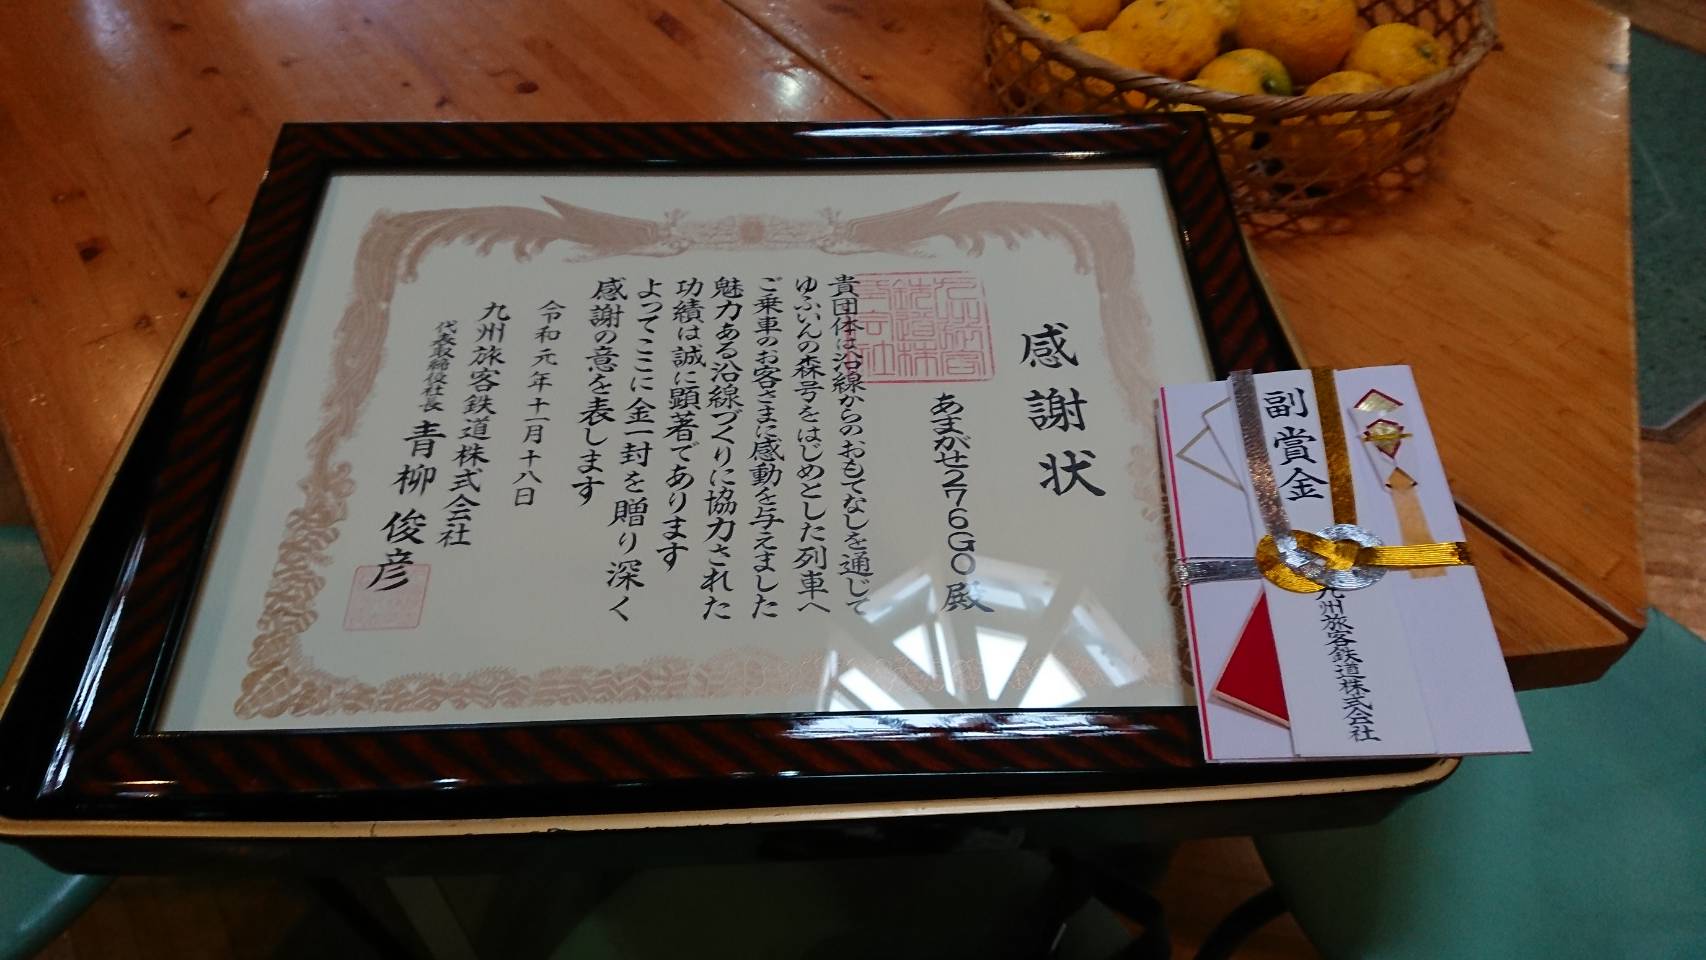 感謝状
あまがせ276GO殿
貴団体は沿線からのおもてなしを通じて
ゆふいんの森号をはじめとした列車へ
ご乗車のお客さまに感動を与えました
魅力ある沿線づくりに協力された
功績は誠に顕著であります
よってここに金一封を贈り深く
感謝の意を表します
令和元年十一月十八日
九州旅客鉄道株式会社
代表取締役社長 青柳俊彦
九州旅客鉄道株式会社
副賞金
九州旅客鉄道株式会社